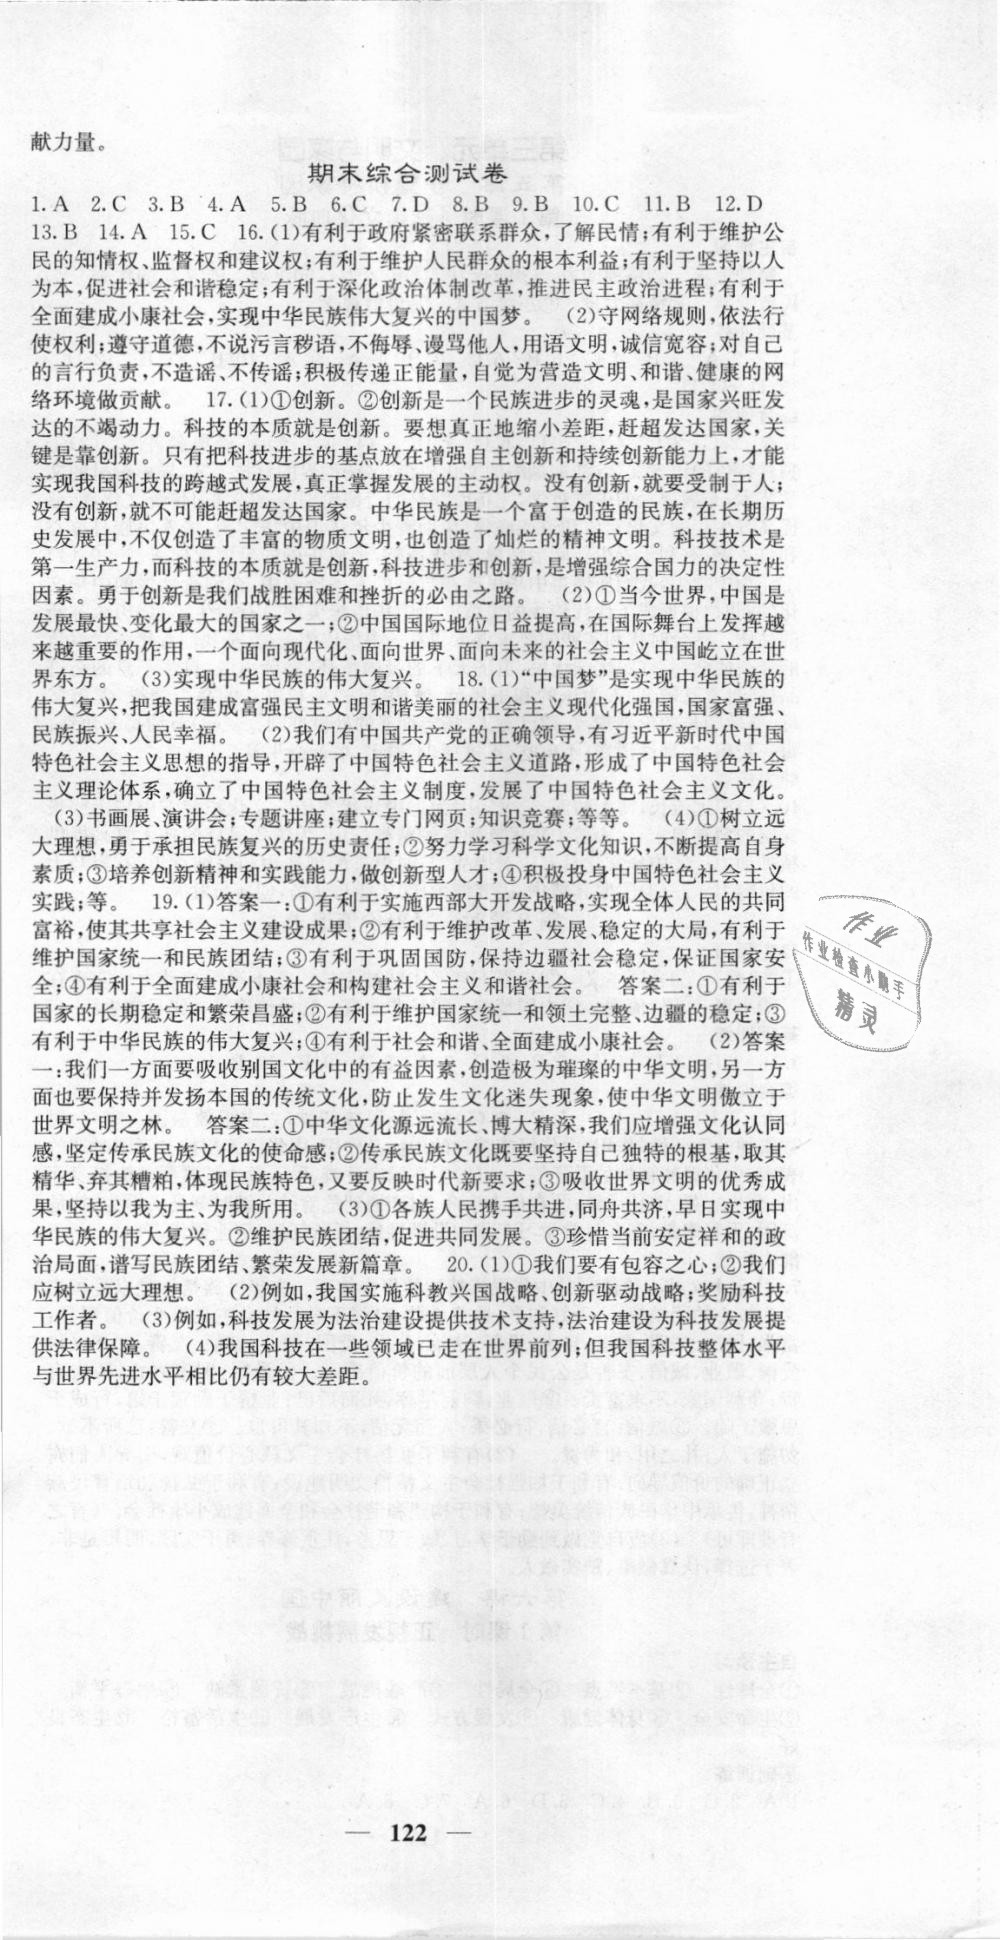 献力量。
期末综合测试卷
1.A 2.C 3.B 4.A 5.B 6.C 7.D 8.B 9.B 10.C 11.B 12.D
13.B 14.A 15.C 16.(1)有利于政府紧密联系群众,了解民情;有利于维护公
民的知情权、监督权和建议权;有利于维护人民群众的根本利益;有利于坚持以人
为本,促进社会和谐稳定;有利于深化政治体制改革,推进民主政治进程;有利于
全面建成小康社会,实现中华民族伟大复兴的中国梦。 (2)守网络规则,依法行
使权利;遵守道德,不说污言秽语,不侮辱、谩骂他人,用语文明,诚信宽容;对自己
的言行负责,不造谣、不传谣;积极传递正能量,自觉为营造文明、和谐、健康的网
络环境做贡献。 17.(1)①创新。②创新是一个民族进步的灵魂,是国家兴旺发
达的不竭动力。科技的本质就是创新。要想真正地缩小差距,赶超发达国家,关
键是靠创新。只有把科技进步的基点放在增强自主创新和持续创新能力上,才能
实现我国科技的跨越式发展,真正掌握发展的主动权。没有创新,就要受制于人;
没有创新,就不可能赶超发达国家。中华民族是一个富于创造的民族,在长期历
史发展中,不仅创造了丰富的物质文明,也创造了灿烂的精神文明。科技技术是
第一生产力,而科技的本质就是创新,科技进步和创新,是增强综合国力的决定性
因素。勇于创新是我们战胜困难和挫折的必由之路。 (2)①当今世界,中国是
发展最快、变化最大的国家之一;②中国国际地位日益提高,在国际舞台上发挥越
来越重要的作用,一个面向现代化、面向世界、面向未来的社会主义中国屹立在世
界东方。 (3)实现中华民族的伟大复兴。 18.(1)“中国梦”是实现中华民族的
伟大复兴,把我国建成富强民主文明和谐美丽的社会主义现代化强国,国家富强、
民族振兴、人民幸福。 (2)我们有中国共产党的正确领导,有习近平新时代中国
特色社会主义思想的指导,开辟了中国特色社会主义道路,形成了中国特色社会
主义理论体系,确立了中国特色社会主义制度,发展了中国特色社会主义文化。
(3)书画展、演讲会;专题讲座;建立专门网页;知识竞赛;等等。 (4)①树立远
大理想,勇于承担民族复兴的历史责任;②努力学习科学文化知识,不断提高自身
素质;③培养创新精神和实践能力,做创新型人才;④积极投身中国特色社会主义
实践;等。 19.(1)答案一:①有利于实施西部大开发战略,实现全体人民的共同
富裕,使其共享社会主义建设成果;②有利于维护改革、发展、稳定的大局,有利于
维护国家统一和民族团结;③有利于巩固国防,保持边疆社会稳定,保证国家安
全;④有利于全面建成小康社会和构建社会主义和谐社会。 答案二:①有利于
国家的长期稳定和繁荣昌盛;②有利于维护国家统一和领土完整、边疆的稳定;③
有利于中华民族的伟大复兴;④有利于社会和谐、全面建成小康社会。 (2)答案
一:我们一方面要吸收别国文化中的有益因素,创造极为璀璨的中华文明,另一方
面也要保持并发扬本国的传统文化,防止发生文化迷失现象,使中华文明傲立于
世界文明之林。 答案二:①中华文化源远流长、博大精深,我们应增强文化认同
感,坚定传承民族文化的使命感;②传承民族文化既要坚持自己独特的根基,取其
精华、弃其糟粕,体现民族特色,又要反映时代新要求;③吸收世界文明的优秀成
果,坚持以我为主、为我所用。 (3)①各族人民携手共进,同舟共济,早日实现中
华民族的伟大复兴。②维护民族团结,促进共同发展。③珍惜当前安定祥和的政
治局面,谱写民族团结、繁荣发展新篇章。 20.(1)①我们要有包容之心;②我们
应树立远大理想。 (2)例如,我国实施科教兴国战略、创新驱动战略;奖励科技
工作者。 (3)例如,科技发展为法治建设提供技术支持,法治建设为科技发展提
供法律保障。 (4)我国科技在一些领域已走在世界前列;但我国科技整体水平
与世界先进水平相比仍有较大差距。
作业
作业检查小助手
精灵
— 122 —